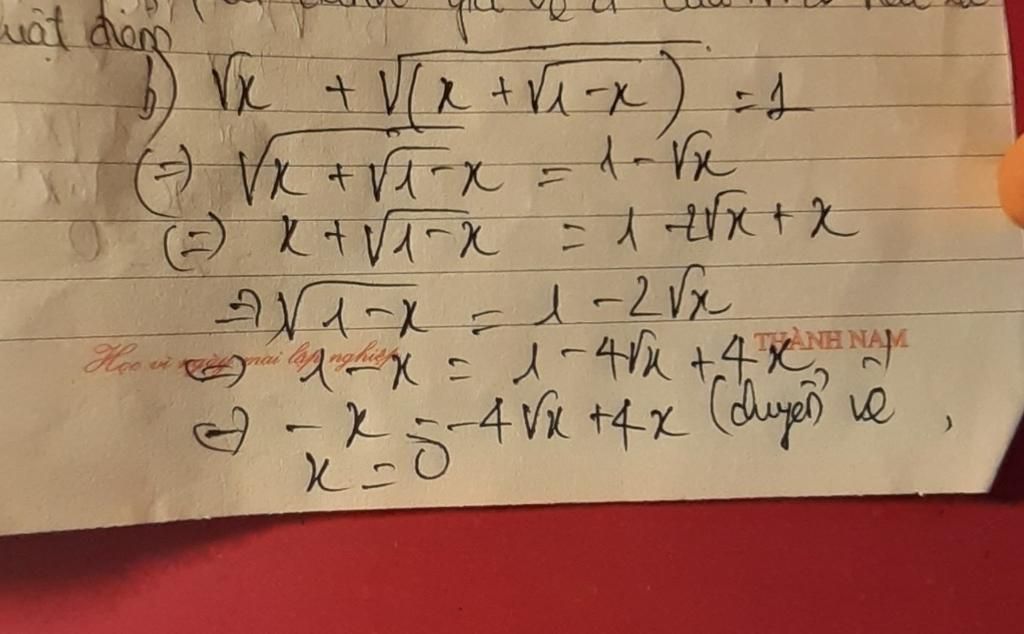 uật điểm
b) √x + √(x + √1-x) = 1
(=) √x + √1-x = 1 - √x
(=) x + √1-x = 1 - 2√x + x
=> √1-x = 1 - 2√x
Học vì ngày mai lập nghiệp THÀNH NAM
<=> 1 - x = 1 - 4√x + 4x
<=> - x = -4√x + 4x (chuyển vế
x = 0